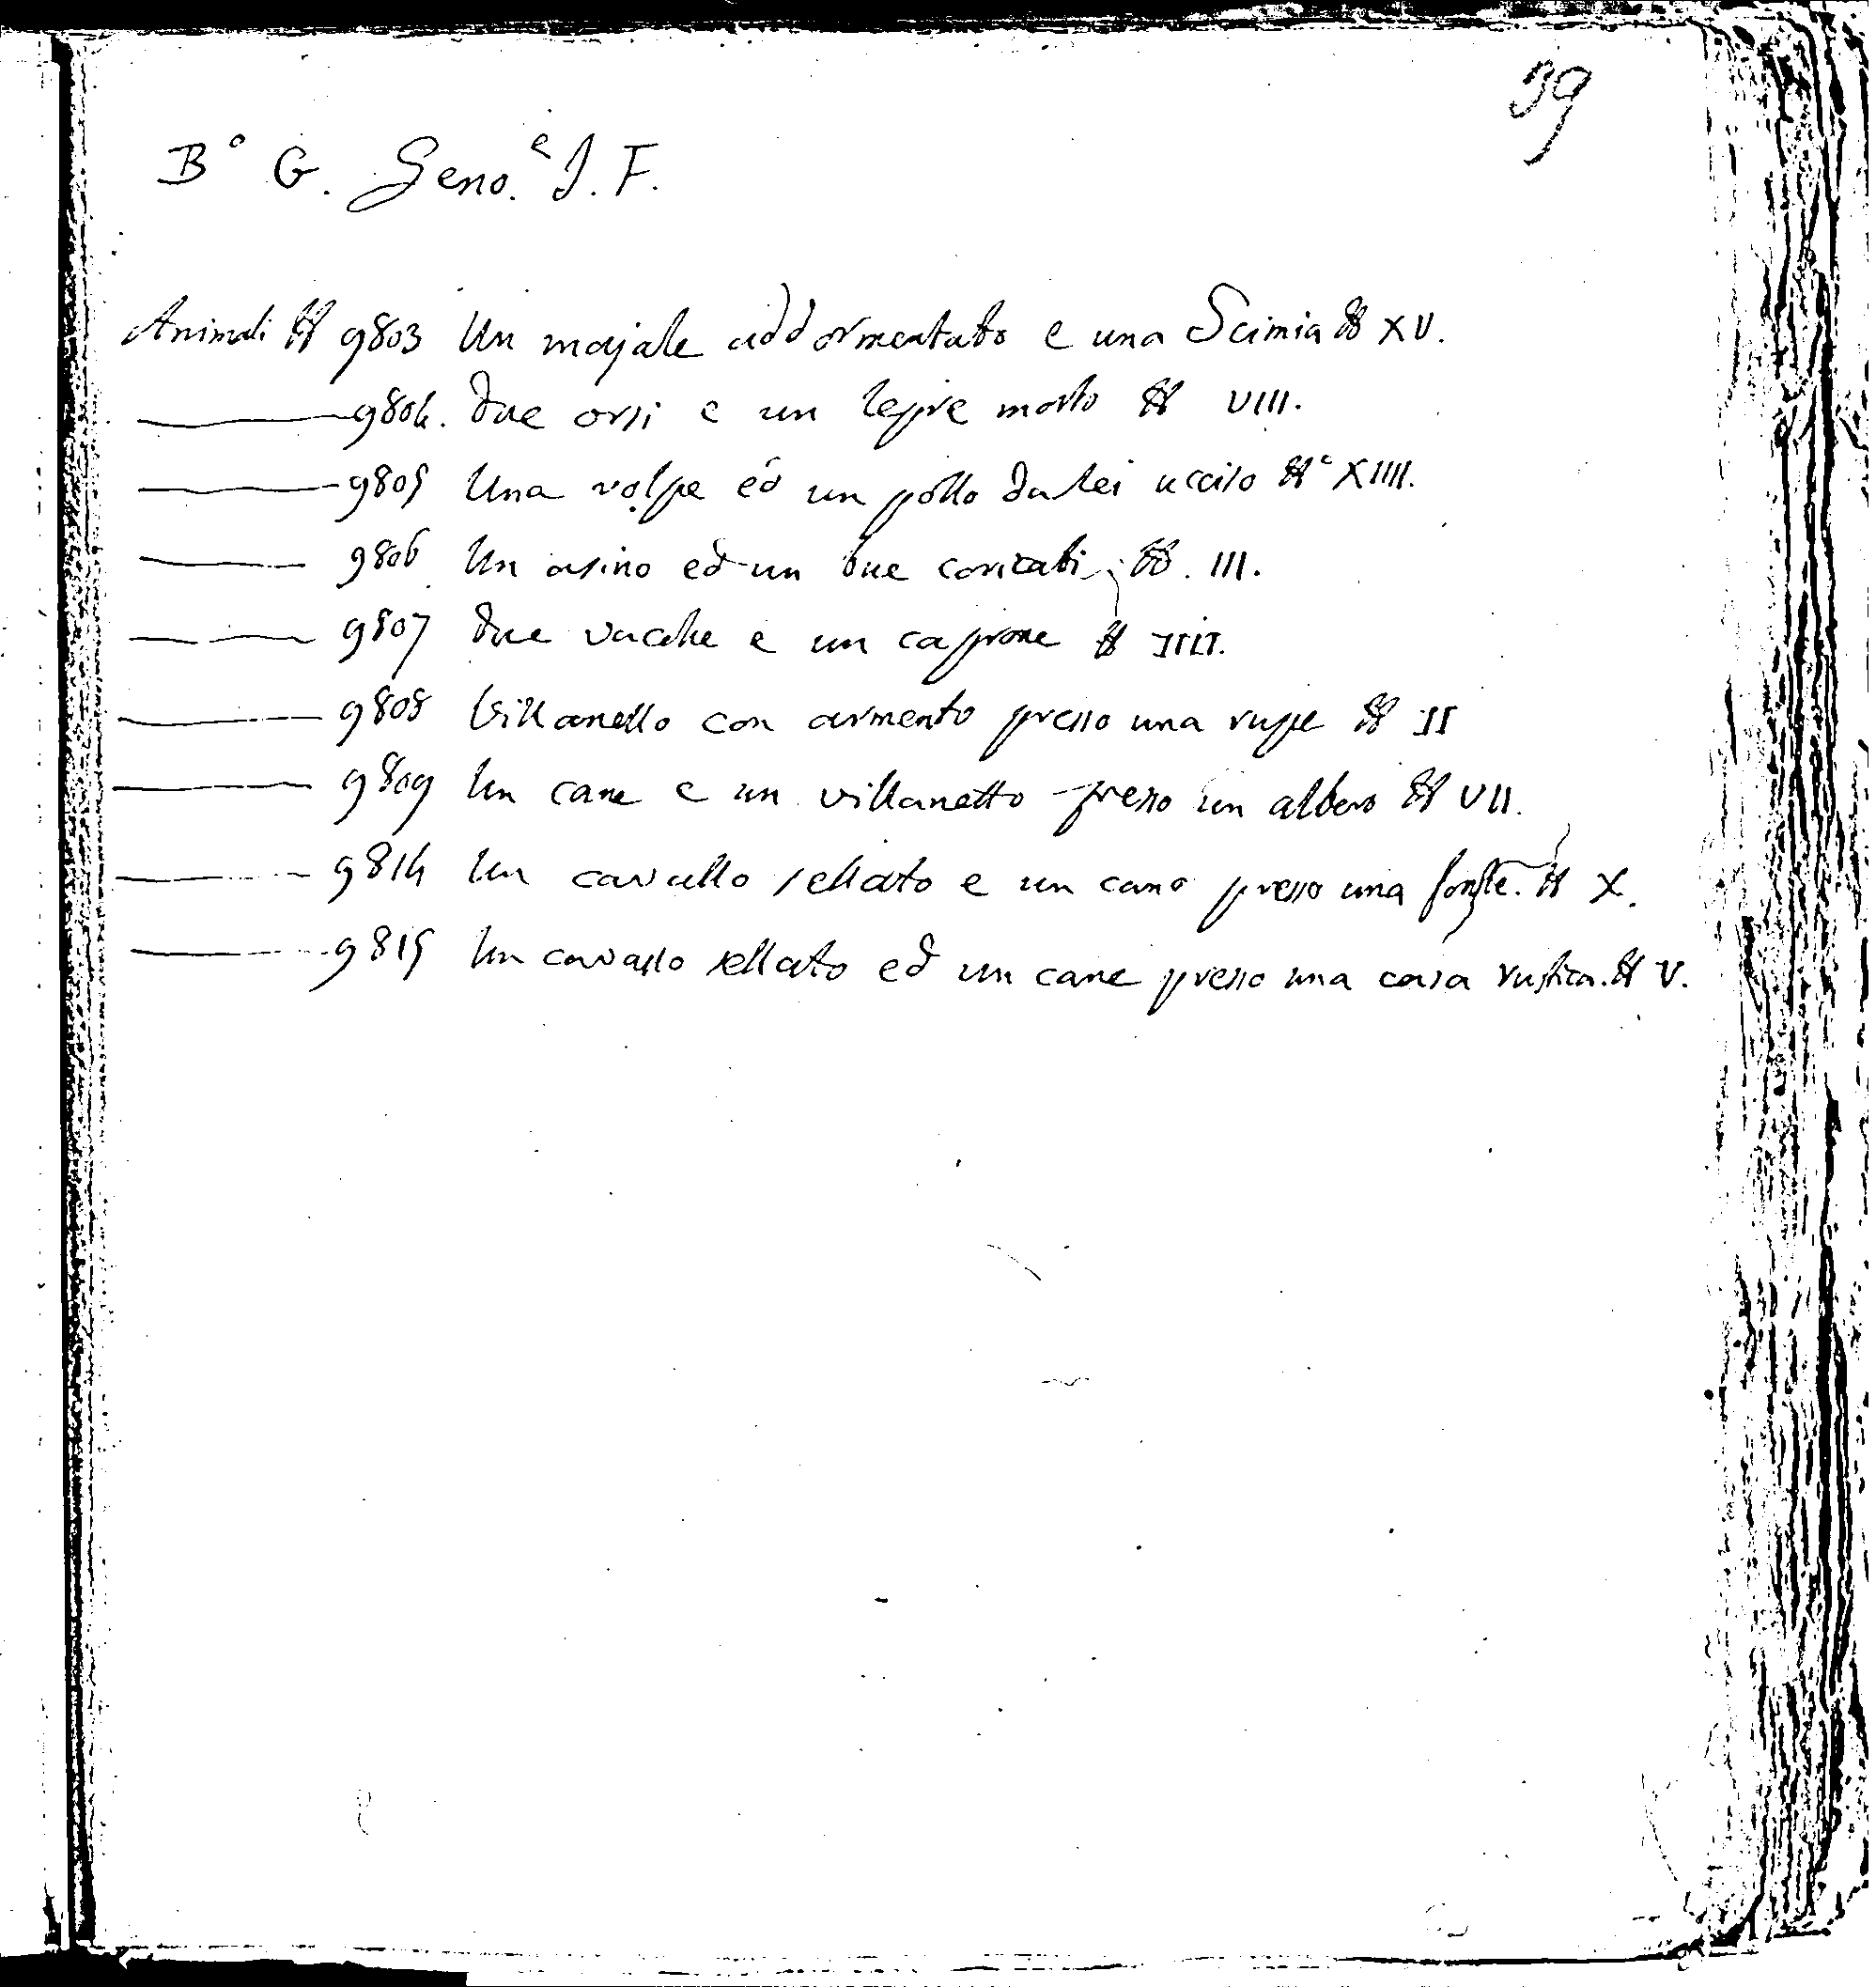 39
B° G. Geno.e I. F.
Animali N 9803 Un majale addormentato e una Scimia N XV.
9804. due orsi e un lepre morto N VIII.
9805 Una volpe ed un pollo da lei ucciso N° XIIII.
9806 Un asino ed un bue coricati N. III.
9807 due vacche e un caprone N IIII.
9808 Villanello con armento presso una rupe N II
9809 Un cane e un villanetto presso un albero N VII.
9814 Un cavallo sellato e un cane presso una fonte. N X.
9815 Un cavallo sellato ed un cane presso una casa rustica. N V.